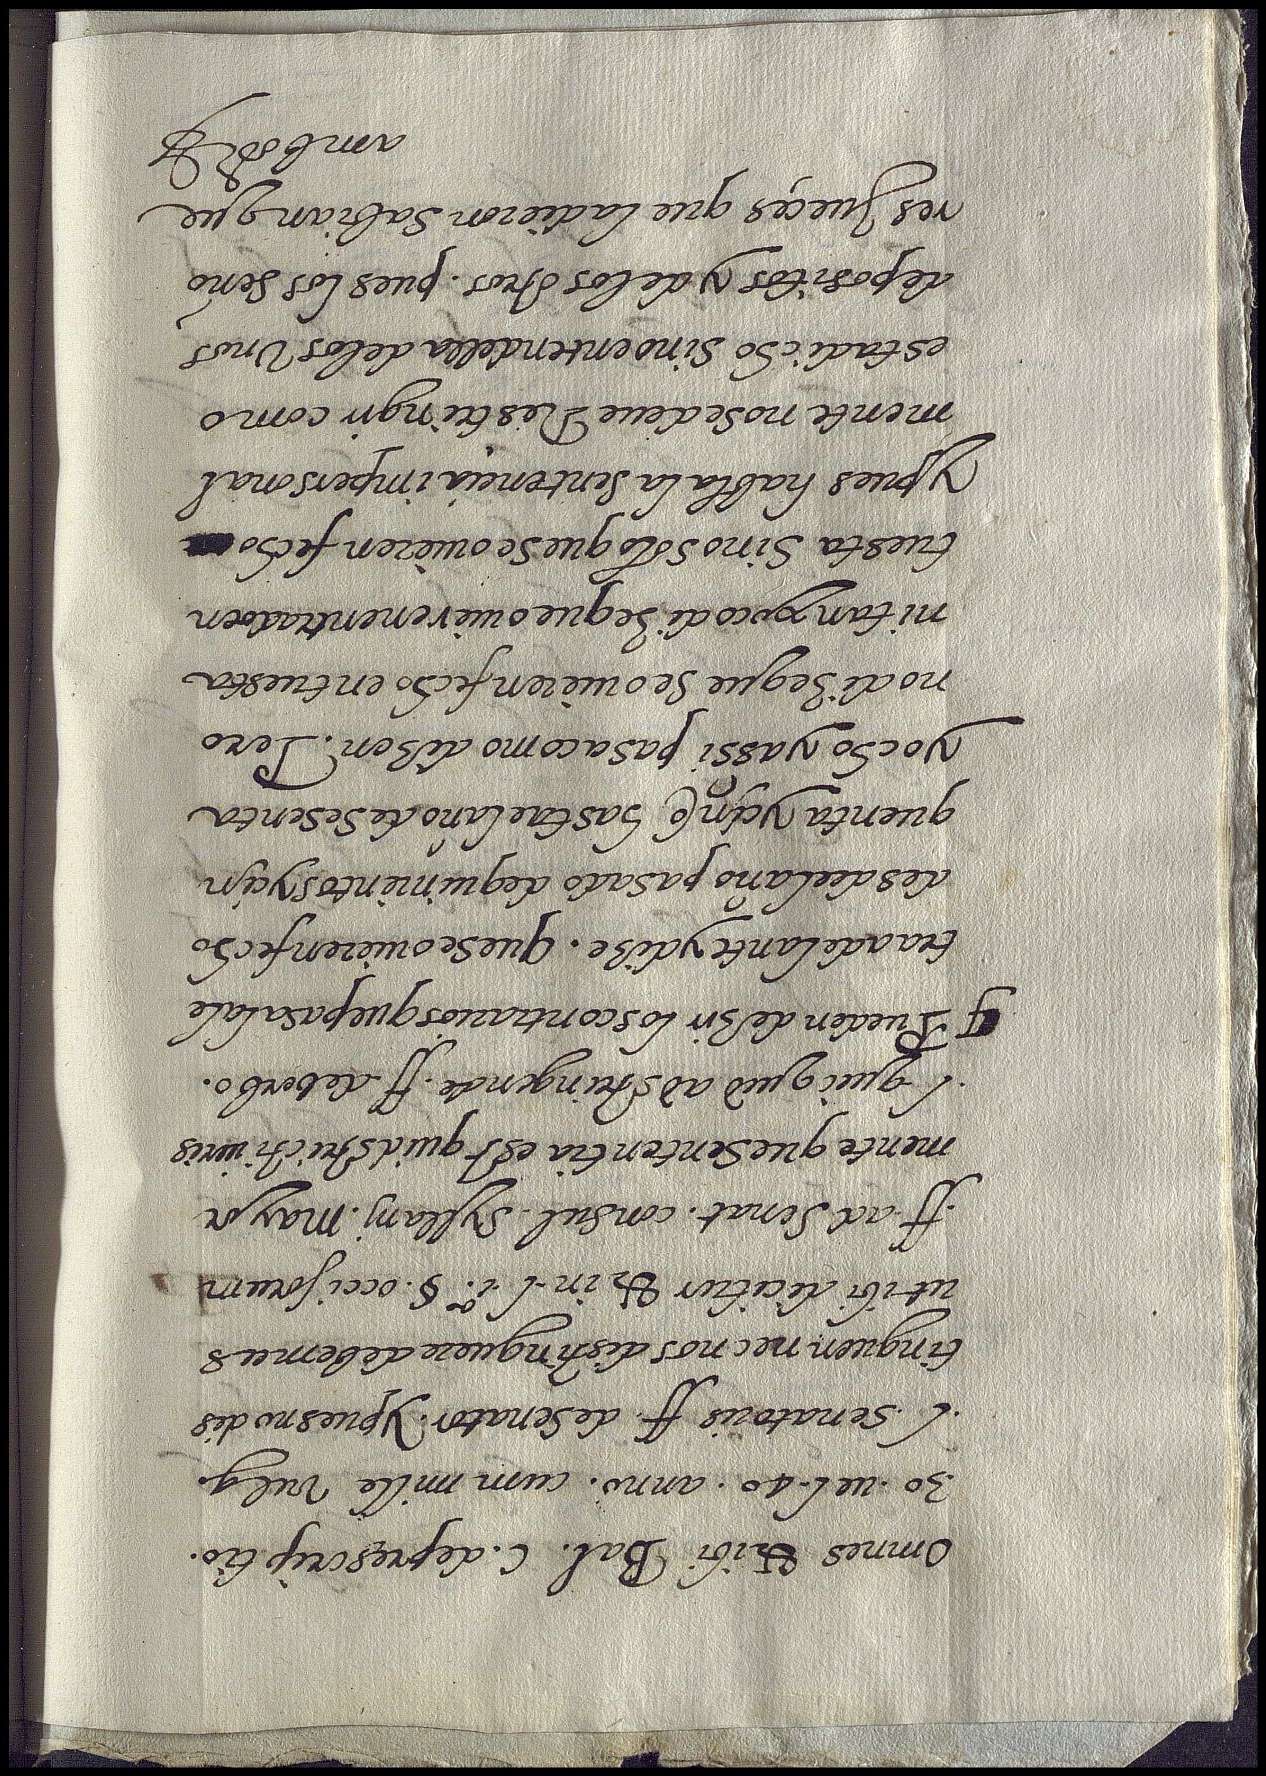 omnes & ibi Bal. C. de prescriptio.
30. vel. 40. anno. cum mille vulg.
l. senatoris ff. de senator. y pues no dis
tinguen nec nos distinguere debemus
ut ibi dicitur & in l. 1.ª §. occisorum
ff. ad Senat. consul. Syllani. mayor
mente que sentencia est quid stricti iuris
l. quiquid adstringende. ff. de verbo.
Pueden dezir los contrarios que pasa la le
tra adelante y dize. que se ouieren fecho
desde el año pasado de quinientos y cin
quenta y cinco hasta el año de sesenta
y ocho y assi pasa como dizen. Pero
no dize que se ouieren fecho en cuesta
ni tanpoco dize que ouieren entrado en
cuesta sino solo que se ouieren fecho
y pues habla la sentencia impersonal
mente no se deue Restringir como
esta dicho sino entendella de los Unos
depositos y de los otros. pues los seño
res Jueçes que la dieron sabian que
ambos